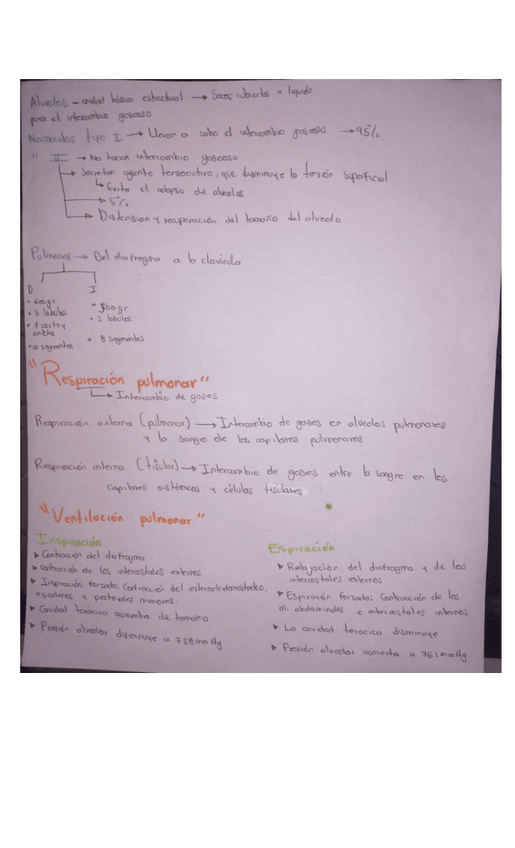 Alveolos - unidad básica estructural → Sacos cubiertos x líquido
para el intercambio gaseoso
Neumocitos tipo I → Llevan a cabo el intercambio gaseoso → 95%
" II → No hacen intercambio gaseoso
→ Secretan agente tensoactivo, que disminuye la tensión superficial
↳ Evita el colapso de alveolos
→ 5%
→ Distension y recuperación del tamaño del alveolo
Pulmones → Del diafragma a la clavícula
D
• 600 gr
• 3 lobulos
• + corto y
ancho
• 10 segmentos
I
• 500 gr
• 2 lobulos
• 8 segmentos
"Respiración pulmonar"
↳ Intercambio de gases
Respiración externa (pulmonar) → Intercambio de gases en alveolos pulmonares
y la sangre de los capilares pulmonares
Respiración interna (tisular) → Intercambio de gases entre la sangre en los
capilares sistémicos y células tisulares
"Ventilación pulmonar"
Inspiración
▸ Contracción del diafragma
▸ Contracción de los intercostales externos
▸ Inspiración forzada: Contracción del esternocleidomastoideo,
escalenos y pectorales menores.
▸ Cavidad torácica aumenta de tamaño
▸ Presión alveolar disminuye a 758 mmHg
Espiración
▸ Relajación del diafragma y de los
intercostales externos
▸ Espiración forzada: Contracción de los
m. abdominales e intercostales internos
▸ La cavidad torácica disminuye
▸ Presión alveolar aumenta a 762 mmHg